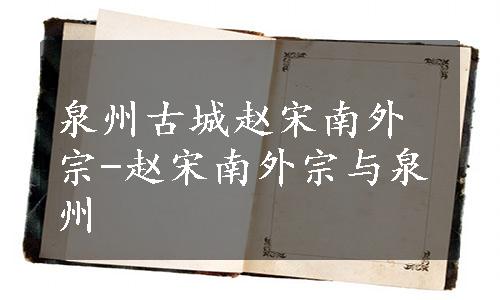 泉州古城赵宋南外
宗-赵宋南外宗与泉
州